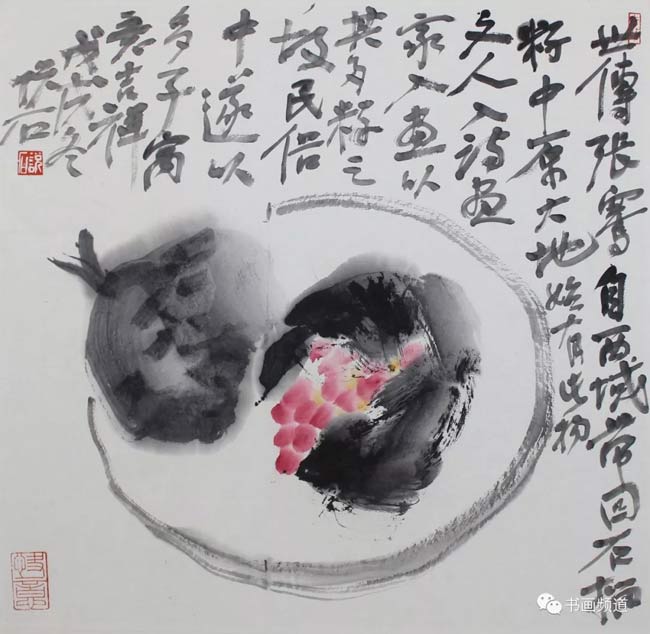 世傳张騫自西域带回石榴
籽中原大地始有此物
文人入诗画
家入画以
其多籽之
故民俗
中遂以
多子寓
意吉祥
戊戌冬
石
书画频道